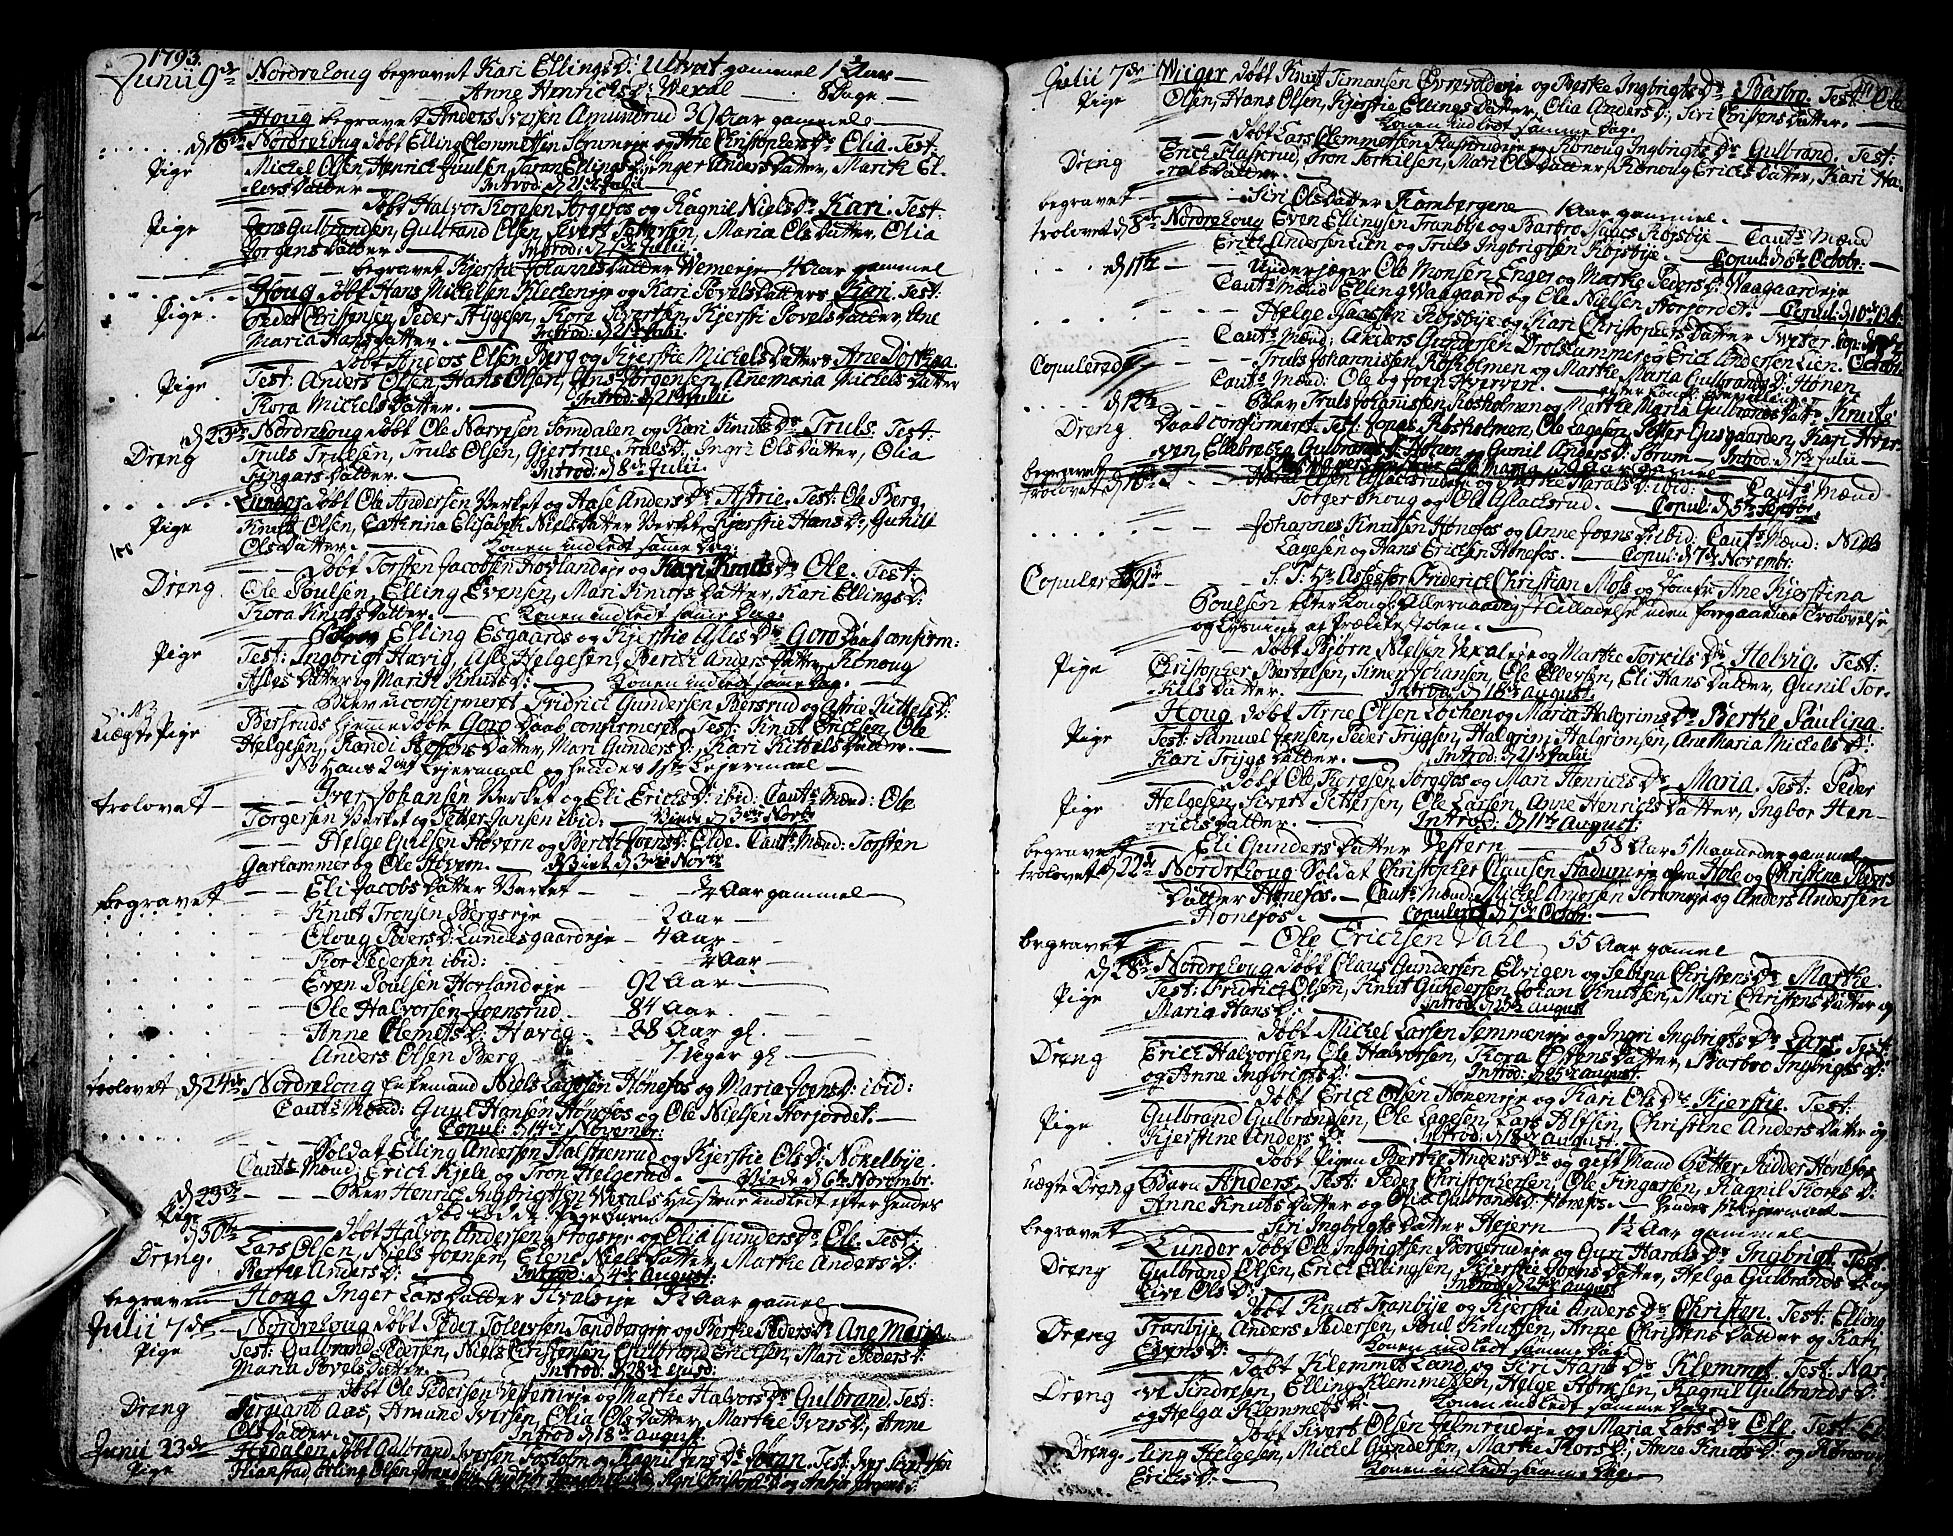 1793.
Junii 9de Nordrehoug begravet Kari Ellings D: Ultvet gammel 1 1/2 Aar
Anne Henrichs D: Wexal — 8 Dage
Houg begravet Anders Iversen Amundrud 39 Aar gammel
d 16de Nordrehoug døbt Elling Clemmetsen og Ane Christophers D: Olia. Test:
Pige Michel Olsen, Henrich Juulsen, Inger Anders Datter, Marith El-
-lers Datter Introd: d 21de Julii
døbt Halvor Thoresen Sørgefos og Ragnil Niels D: Kari. Test:
Pige Jens Gulbrandsen, Gulbrand Olsen, Sivert Pettersen, Maria Ols Datter, Olia
Jorgens Datter Introd: d 7de Julii
begravet Kjerstie Johannes Datter 4 Aar gammel
Houg døbt Hans Michelsen og Kari Povels Datters Kari. Test:
Pige Peder Christensen, Peder Thora Iversen, Kjersti Povels Datter, Ane
Maria Hans Datter Introd: d 21de Juli
døbt Anders Olsen Berg og Kjerstie Michels Datters Ane Dorthea.
Pige Test: Anders Olsen, Hans Olsen, Jens Jorgensen, Anemaria Michels Datter
Thora Michels Datter. Introd: d 21de Julii
d 23de Nordrehoug døbt Ole Narvesen Somdalen og Kari Knuts D: Truls. Test:
Dreng Truls Trulsen, Truls Olsen, Gjertrue Truls D: Ingri Ols Datter, Olia
Fingars Datter. Introd: d 8de Julii
Lunder døbt Ole Andersen Verket og Aase Anders D: Astrie. Test: Ole Berg,
Pige Knut Olsen, Cathrina Elisabeth Niels Datter Verket, Kjerstie Hans D: Gunild
Ols Datter. Konen indledt same Dag.
døbt Torsten Jacobsen Hovland eje og Kari Knuts D: Ole. Test:
Dreng Ole Poulsen, Elling Evensen, Mari Knuts Datter, Kari Ellings D:
Thora Knuts Datter. Konen indledt same Dag.
Blev Elling Esgaards og Kjerstie D: Goro Daab confirm:
Pige Test: Ingbrigt Hævig, Asle Helgesen, Berith Anders Datter, Rønoug
Asles Datter og Marith Knuts D: Konen indledt same Dag.
Blev confirmeret Fridrich Gundersen Bersrud og Astrie Kittels D:
uægte Pige Bersruds hjemmedøbte Goro Daab confirmeret. Test: Knut Erichsen, Ole
Helgesen, Randi Datter, Mari Gunders D: Kari Kittels Datter.
NB Hans 2det Lejermaal og hendes 1ste Lejermaal
trolovet Iver Johansen Verket og Eli Erichs D: ibid: Caut: Mænd: Ole
Torgersen Verket og Petter Jansen ibid: Viede d 3de Novbr
Helge Gulsen Hovern og Berith Joens D: Elde. Caut: Mænd: Torsten
Garhammer og Ole Hovern. Viet d 3de Novbr
begravet Eli Jacobs Datter Verket 3/4 Aar gammel
Knut Tronsen Bergseje 2 Aar
Oloug Peders D: Lundesgaardeje 4 Aar
Thor Pedersen ibid: 1/4 Aar
Even Poulsen Hovlandeje 92 Aar
Ole Halvorsen Joensrud 84 Aar
Anne Clemets D: Hævig 28 Aar gl.
Anders Olsen Berg 7 Uger gl
trolovet d 24de Nordrehoug Enkemand Niels Lagesen Hønefos og Maria Joens D: ibid:
Caut: Mænd: Guul Hansen Hønefos og Ole Nielsen Horjordet.
Copul: d 14de Novembr:
Soldat Elling Andersen og Kjerstie Ols D: Nøkelbye.
Caut: Mænd: Erich Kjele og Tron Helgerud. Viede d 6te Novembr.
d 23de Blev Henric Ingbrigtsen Wexals Hustrue indledt efter hendes
Pige død fødde Pigebarn.
d 30te døbt Halvor Andersen og Olia Gunders D: Ole. Test:
Dreng. Lars Olsen, Niels Joensen, Elene Niels Datter, Marthe Anders D:
Berthe Anders D: Introd: d 4de August:
begraven Houg Inger Lars Datter Hvalseje Aar gammel
Julii 7de Nordrehoug døbt Peder Tolevsen Tandbergeje og Berthe Peders D: Ane Maria
Pige Test: Gulbrand Pedersen, Niels Christensen, Gulbrand Erichsen, Mari Peders D:
Maria Povels Datter. Introd: d 28de ejusd
døbt Ole Pedersen Vesterneje og Marthe Halvors D: Gulbrand. Test:
Dreng Sergiant Aas, Amund Iversen, Olia Ols Datter, Marthe Ivers D: Anne
Ols Datter. Introd: d 18de August
Junii 23de Hødalen døbt Gulbrand Iversen Fosholm og Ragnil Jens D: Jøran. Test: Iver Sivertsen
Pige
Julii 7de Wiiger døbt Knut Simansen og Berthe Ingbrigts D: Barbro. Test: Ole
Pige Olsen, Hans Olsen, Kjerstie Ellings Datter, Olia Anders D: Siri Christens Datter.
Konen indledt samme Dag.
døbt Lars Clemmetsen og Rønoug Ingbrigts D: Gulbrand. Test:
Dreng Erich Flaskerud, Tron Torkilsen, Mari Ols Datter, Rønoug Erichs Datter, Kari Ha-
-ralds Datter.
begravet Siri Ols Datter Rambergene 1 Aar gammel.
trolovet d 8de Nordrehoug Even Ellingsen Tranbye og Barbro Maus Røysbye Caut: Mænd
Erich Andersen Lien og Truls Ingbrigtsen Røysbye. Copul: d 6te Octobr:
d 11te Underjæger Ole Monsen Enger og Marthe Peders D: Waagaardeje
Caut: Mænd Elling Waagaard og Ole Nielsen Horjordet. Copul: d 10de Octbr:
Helge Røysbye og Kari Christophers Datter Tveter Cop: d
Caut: Mænd: Anders Gundersen og Erich Andersen Lien. Octobr
Copulerede Truls Johannissen Roskolmen og Marthe Maria Gulbrands D: Honen
Caut: Mænd: Ole og Joen Hverven. efter Kongl: Bevilling
d 12te Blev Truls Johanissen Roskolmen og Marthe Maria Gulbrands Datrs Knuts
Dreng Daab confirmeret Test: Jonas Roskolmen, Ole Lagesen, Petter Gusgaarden, Kari Hver-
ven, Gulbrands D: Honen og Gunil Anders D: Sørum. Introd: d 7de Julii
begravet
trolovet d 16de Harald Olsen Aslacsrudeje og Haralds D: ibid: Caut: Mænd
Torger Skoug og Ole Aslacsrud. Copul: d 5te Septbr
Johannes Knutsen Hønefos og Anne Joens D: ibid: Caut: Mænd: Niels
Lagesen og Hans Erichsen Hønefos. Copul: d 7de Novembr:
Copulered d 21de S: T: Hr Assessor Friderich Christian Mose og Jomfr: Ane Kjerstina
Poulsen efter Kongl: Allernaadigst Tilladelse uden foregaaende Trolovelse
og Lysning af Prædikestolen.
døbt Bjørn Nielsen Vexaleje og Marthe Torkils D: Helvig. Test:
Pige Christopher Bertelsen, Simen Johansen, Ole Ellevsen, Eli Hans Datter, Gunil Tor-
-kils Datter. Introd: d 18de August.
Houg døbt Arne Olsen Lochen og Maria Halgrims D: Berthe Paulina.
Pige Test: Samuel Jensen, Peder Trygsen, Halgrim Halgrimsen, Ane Maria Michels D:
Kari Trygs Datter. Introd: d 21de Julii
døbt Ole Sørgefos og Mari Henrichs D: Maria. Test: Peder
Pige Helgesen, Sivert Pettersen, Ole Larsen, Anne Henrichs Datter, Ingbor Hen-
-richs Datter. Introd: d 11te August:
begravet Eli Gunders Datter Vestern 58 Aar 5 Maaneder gammel
trolovet d 22de Nordrehoug Soldat Christopher Clausen Stadum eje fra Hole og Christina Peders
Datter Hønefos. Caut: Mænd: Michel Andersen og Anders Andersen
Hønefos. Copuleret d 7de Octobr:
begravet Ole Erichsen Dahl 55 Aar gammel
d 28de Nordrehoug døbt Claus Gundersen Elvigen og Sebina Christens D: Marthe.
Pige Test: Fridrich Olsen, Knut Gundersen, Johan Knutsen, Mari Christens Datter og
Maria Hans D: Introd: d 25de August
døbt Michel Larsen og Ingri Ingbrigts D: Lars. Test:
Dreng Erich Halvorsen, Ole Halvorsen, Thora Datter, Barbro Ingbrigts D:
og Anne Ingbrigts D: Introd: d 25de August.
døbt Erich Olsen Honeneje og Kari Ols D: Kjerstie. Test:
Pige Gulbrand Gulbrandsen, Ole Lagesen, Lars Alfsen, Christine Anders Datter og
Kjerstine Anders D: Introd: d 18de August.
døbt Pigen Berthe Anders D: og gift Mand Petter Ridder Hønefos
uægte Dreng Barn Anders. Test: Peder Christophersen, Ole Fingarsen, Ragnil Thores D:
Anne Knuts Datter og Olia Gulbrands D: Hønefos. hendes 1te Lejermaal
begravet Siri Ingbrigts Datter Hejern 1 1/2 Aar gammel
Lunder døbt Ole Ingbrigtsen Bergsrudeje og Guri Haralds D: Ingbrigt. Test:
Dreng Gulbrand Olsen, Erich Ellingsen, Kjerstie Joens Datter, Helga Gulbrands D: og
Live Ols D: Introd: d 25de August
døbt Knut Tranbye og Kjerstie Anders D: Christen. Test: Elling
Dreng Tranbye, Anders Pedersen, Poul Knutsen, Anne Christens Datter og Kari
Evens D: Konen indledt samme Dag.
døbt Klemmet Land og Siri Hans D: Klemmet. Test: Nar-
Dreng -ve Sindresen, Elling Klemmetsen, Helge Ragnil Gulbrands D:
og Helga Klemmets D: Konen indledt samme Dag.
døbt Sivert Olsen og Maria Lars D: Ole. Test: El-
Dreng -ling Helgesen, Michel Gundersen, Marthe Thors D: Anne Knuts D: og Rønoug
Erichs D: Konen indledt samme Dag.